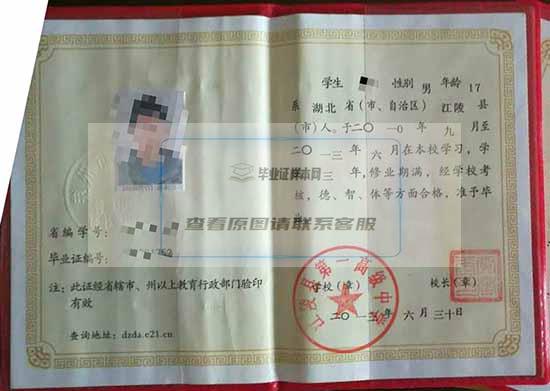 学生 性别 男 年龄 17
系 湖北 省（市、自治区）江陵 县
（市）人。于二〇一〇年 九 月至
二〇一三 年 六 月在本校学习，学
制 三 年，修业期满，经学校考
核，德、智、体等方面合格，准予毕
业
毕业证样本网
查看原图请联系客服
省编学号：
毕业证编号：
注：此证经省辖市、州以上教育行政部门验印
有效
查询地址：dzda.e21.cn
学校（章） 校长（章）
江陵县第一高级中学
二〇一三年 六 月 三十日